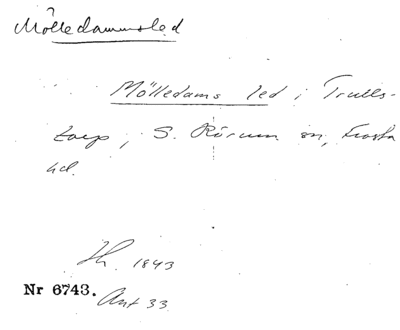 Mölledammsled
Mölledams led i Trulls-
torp, S. Rörum sn, Frosta
hd.
Jh. 1843
Nr 6743. Ant 33